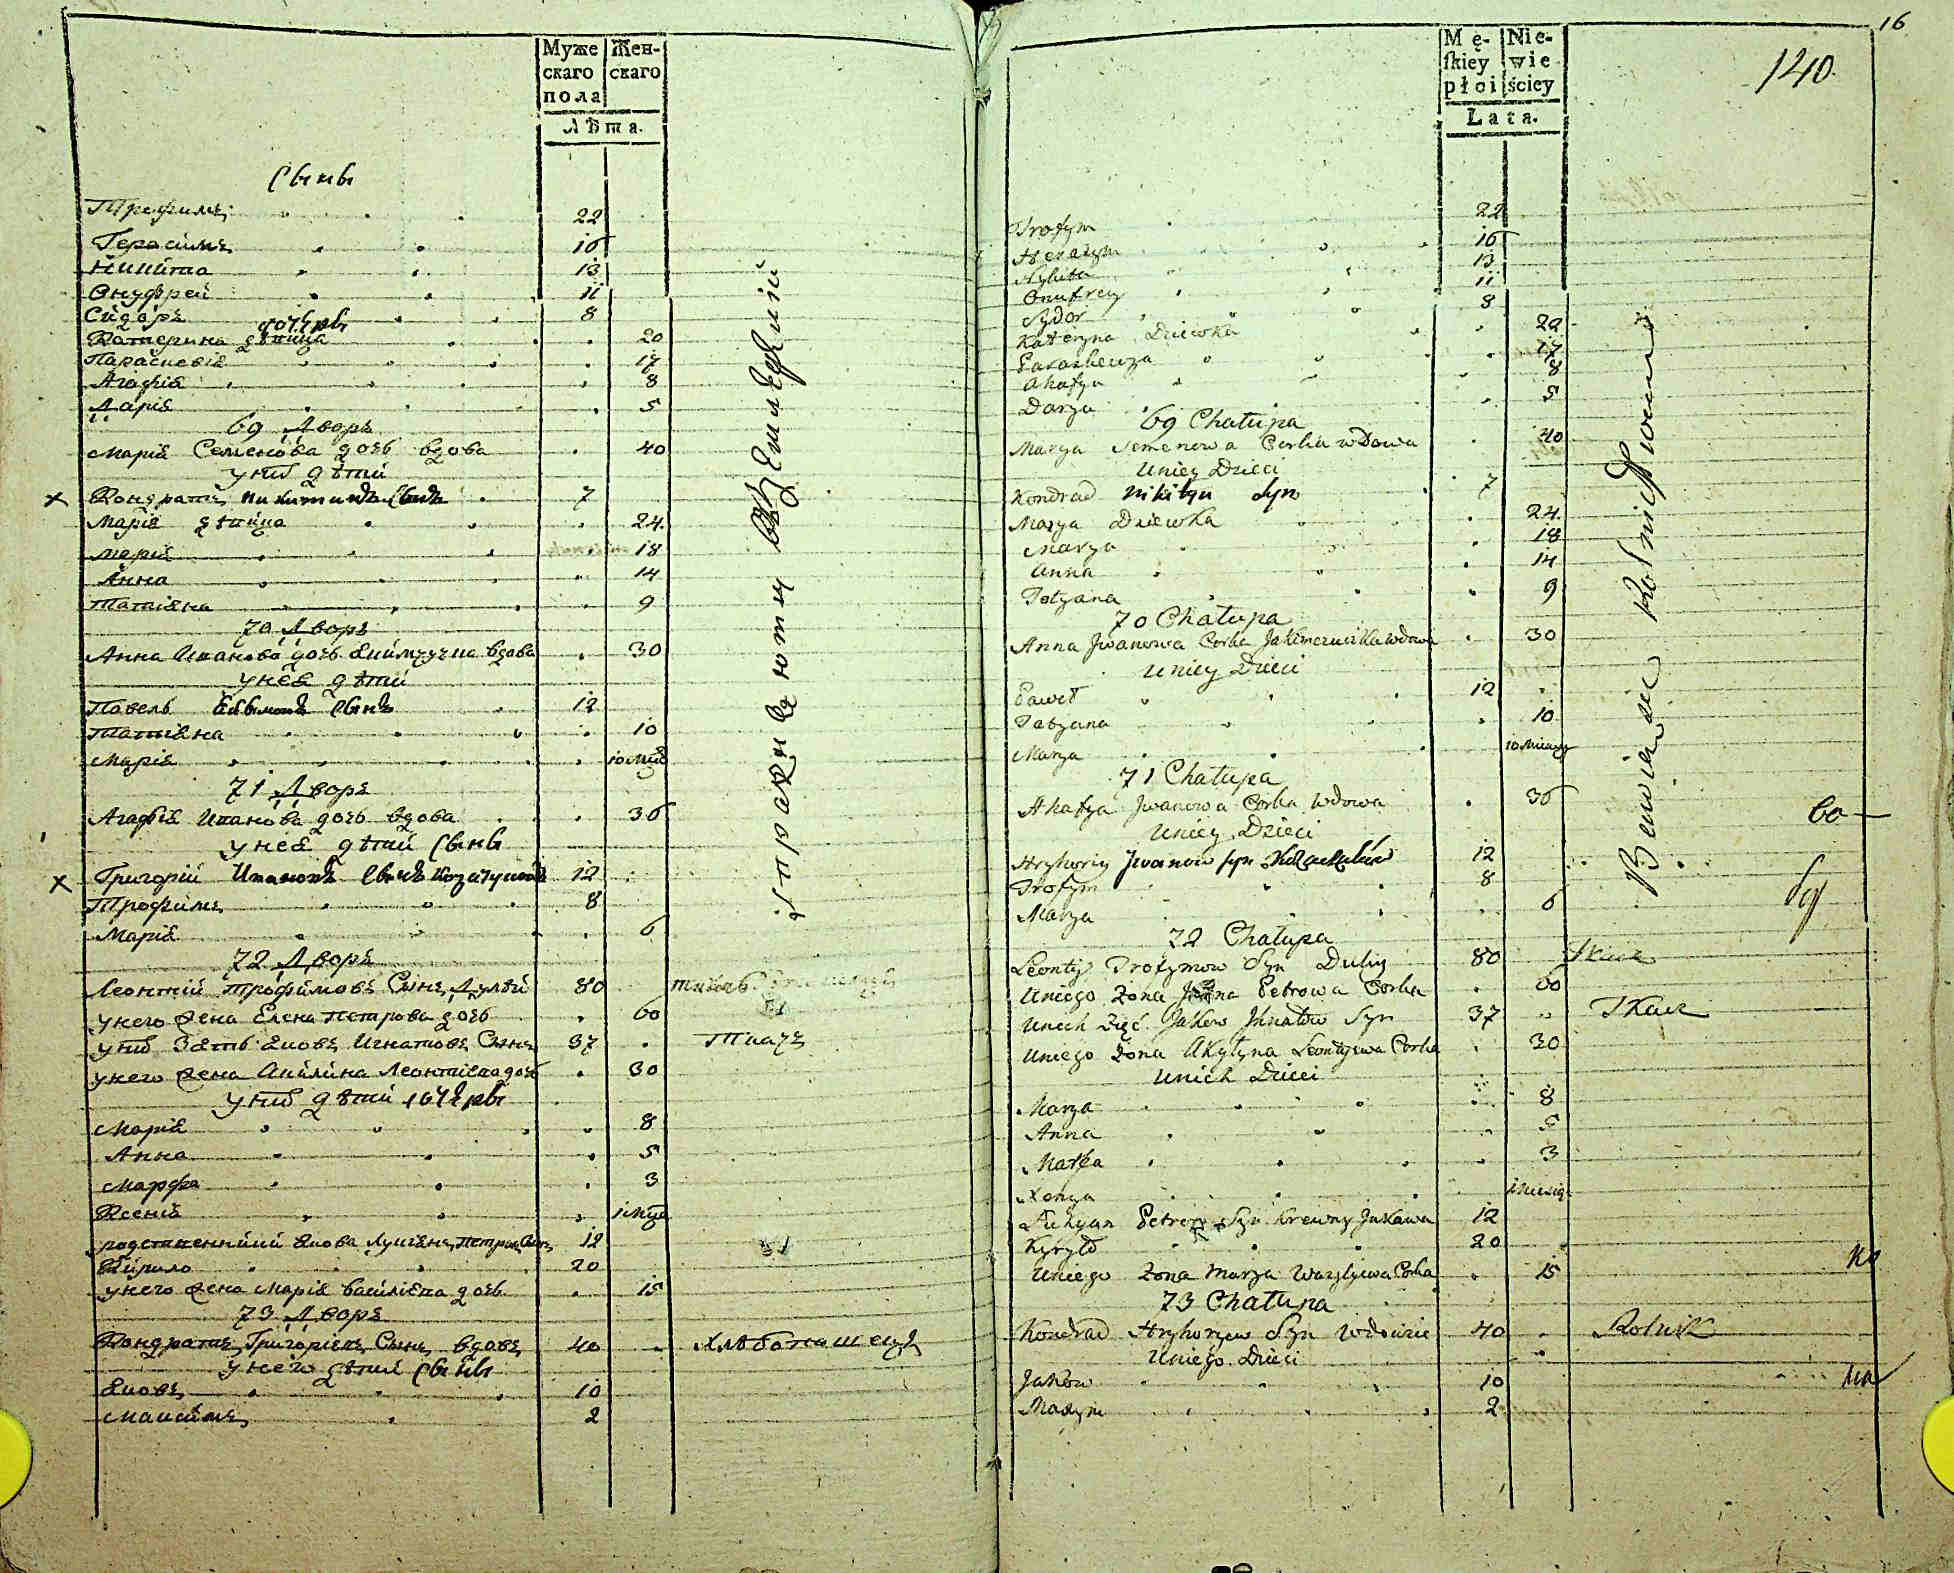 Муже Жен-
скаго скаго
пола
Лѣта.
Сыны
Трофимъ 22
Герасимъ 16
Никита 13
Онуфрей 11
Сидоръ 8
дочери
Катерина дѣвица 20
Параскевія 17
Агафія 8
Дарія 5
69 Дворъ
Марія Семенова дочь вдова 40
у ней дѣти
Кондратъ Никитинъ сынъ 7
Марія дѣвица 24
Марія 18
Анна 14
Татіяна 9
70 Дворъ
Анна Иванова дочь вдова 30
у нея дѣти
Павелъ сынъ 12
Татіяна 10
Марія 10 мцъ
71 Дворъ
Агафія Иванова дочь вдова 36
у нея дѣти сыны
Григорій Ивановъ сынъ 12
Трофимъ 8
Марія 6
72 Дворъ
Леонтій Трофимовъ Сынъ Дулѣй 80
у него жена Елена Петрова дочь 60
у нихъ Зять Яковъ Игнатовъ Сынъ 37 Ткачъ
у него жена Акилина Леонтіева дочь 30
у нихъ дѣти дочеры
Марія 8
Анна 5
Марфа 3
Ксенія 1 мцъ
родственникъ Якова Лукіянъ Петровъ Сынъ 12
Кирило 20
у него жена Марія Василіева дочь 15
73 Дворъ
Кондратъ Григоріевъ Сынъ вдовъ 40 Хлѣбопашецъ
у него дѣти сыны
Яковъ 10
Максимъ 2
16
140.
Mę- Nie-
skiey wie
płci ściey
Lata.
Trofym 22
Herasym 16
Nykita 13
Onufrey 11
Sydor 8
Kateryna Dziewka 20
Paraskewya 17
Ahafya 8
Darya 5
69 Chatupa
Marya Semenowa Corka wdowa 40
Uniey Dzieci
Kondrad Nikityn Syn 7
Marya Dziewka 24
Marya 18
Anna 14
Tatyana 9
70 Chatupa
Anna Jwanowa Corka Jakimczuczka wdowa 30
Uniey Dzieci
Paweł 12
Tatyana 10
Marya 10 Miesięcy
71 Chatupa
Ahafya Jwanowa Corka Wdowa 36
Uniey Dzieci
Hryhoriy Jwanow syn 12
Trofym 8
Marya 6
72 Chatupa
Leontiy Trofymow Syn Duliy 80
Uniego Zona Petrowa Corka 60
Unich Zięć Jakow Jhnatow Syn 37 Tkacz
Uniego Zona Akylyna Leontyewa Corka 30
Unich Dzieci
Marya 8
Anna 5
Marfa 3
Xenya 1 miesiąc
Lukyan Petrow Syn krewny Jakowa 12
Kyryło 20
Uniego Zona Marya Wasylyewa Corka 15
73 Chatupa
Kondrad Hryhoryew Syn Wdowiec 40 Rolnik
Uniego Dzieci
Jakow 10
Maxym 2